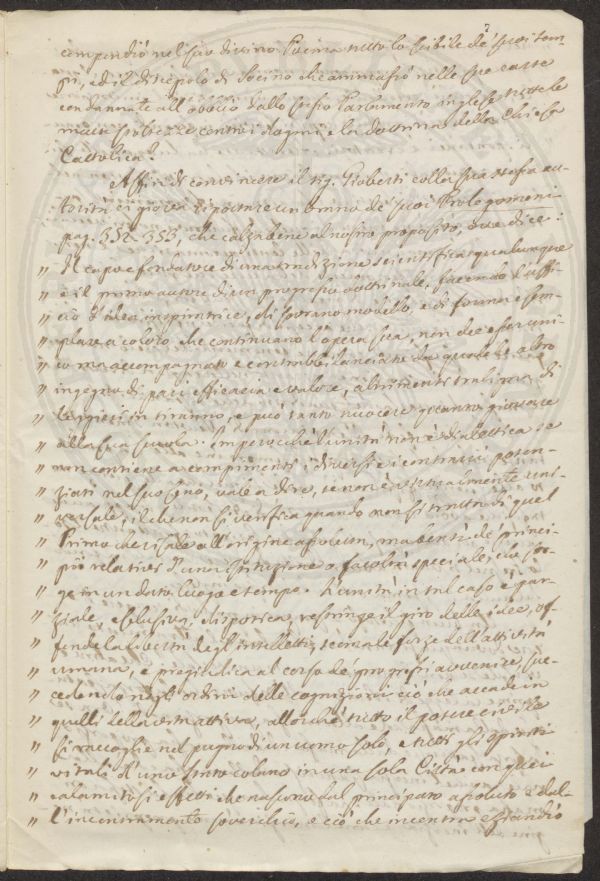 7
compendiò nel suo divino Poema tutto lo scibile de' suoi tem-
pi, ed il discepolo di Socino che ammassò nelle sue carte
condannate all'obblio dallo stesso Parlamento inglese tutte le
contro i dogmi e la dottrina della Chiesa
Cattolica?
Affin di convincere il sig. Gioberti colla sua stessa au-
torità ci giova riportare un brano de' suoi Prolegomeni
pag. 352-353, che calza bene al nostro proposito, ove dice:
" Il capo e fondatore di una tradizione scientifica qualunque
" è il primo autore di un progresso dottrinale, facendo l'uffi-
" cio d'idea inspiratrice, di sovrano modello, e di forma esem-
" plare a coloro che continuano l'opera sua, non dee esser uni-
" co ma accompagnato e contrabbilanciato da qualche altro
" ingegno di pari efficacia e valore, altrimenti traligna di
" leggieri in tiranno, e può tanto nuocere quanto giovare
" alla sua scuola. Imperocchè l'unità non è dialettica se
" non contiene a compimento i diversi e i contrarii poten-
" ziati nel suo seno, vale a dire, se non è virtualmente uni-
" versale, il che non si verifica quando non si tratta di quel
" Primo che risale all'origine assoluta, ma bensì de' princi-
" pii relativi d'una istituzione o facoltà speciale, che sor-
" ge in un dato luogo e tempo. L'unità in tal caso è par-
" ziale, esclusiva, dispotica, restringe il giro delle idee, of-
" fende la libertà degl'intelletti, scema le forze dell'attività
" umana, e pregiudica al corso de' progressi avvenire, suc-
" cedendo negli ordini delle cognizioni ciò che accade in
" quelli della vita attiva, allorchè tutto il potere civile
" si raccoglie nel pugno di un uomo solo, e tutti gli spiriti
" vitali d'uno stato colano in una sola Città con quei
" calamitosi effetti che nascono dal principato assoluto e dal-
" l'incentramento soverchio, e ciò che incontra eziandio